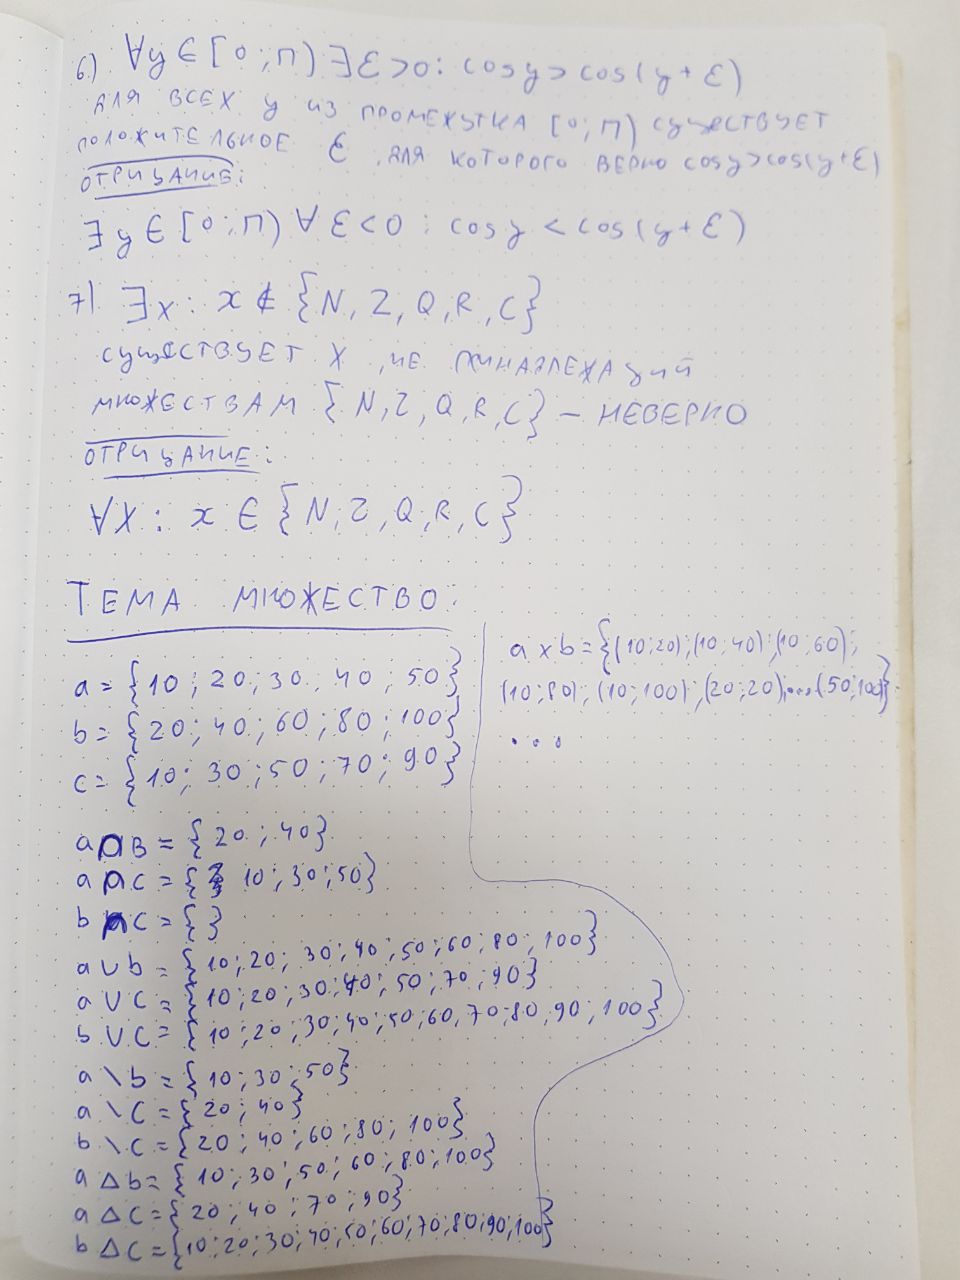 6.) ∀y ∈ [0; П) ∃ε>0: cosy > cos(y+ε)
ДЛЯ ВСЕХ y ИЗ ПРОМЕЖУТКА [0; П) СУЩЕСТВУЕТ
ПОЛОЖИТЕЛЬНОЕ ε, ДЛЯ КОТОРОГО ВЕРНО cosy>cos(y+ε)
ОТРИЦАНИЕ:
∃ y ∈ [0; П) ∀ ε<0 : cosy < cos(y+ε)
7) ∃x: x ∉ {N, Z, Q, R, C}
СУЩЕСТВУЕТ X, НЕ ПРИНАДЛЕЖАЩИЙ
МНОЖЕСТВАМ {N, Z, Q, R, C} – НЕВЕРНО
ОТРИЦАНИЕ:
∀X: x ∈ {N, Z, Q, R, C}
ТЕМА МНОЖЕСТВО:
a = {10; 20; 30; 40; 50}
b = {20; 40; 60; 80; 100}
c = {10; 30; 50; 70; 90}
a∩B = {20; 40}
a∩c = {10; 30; 50}
b∩c = { }
a∪b = {10; 20; 30; 40; 50; 60; 80; 100}
a∪C = {10; 20; 30; 40; 50; 70; 90}
b∪C = {10; 20; 30; 40; 50; 60, 70; 80, 90; 100}
a\b = {10; 30; 50}
a\C = {20; 40}
b\C = {20; 40; 60; 80; 100}
a△b = {10; 30; 50; 60; 80; 100}
a△C = {20; 40; 70; 90}
b△C = {10; 20; 30; 40; 50; 60; 70; 80; 90; 100}
a×b = {(10; 20); (10; 40); (10; 60);
(10; 80); (10; 100); (20; 20); ... (50; 100)}
...